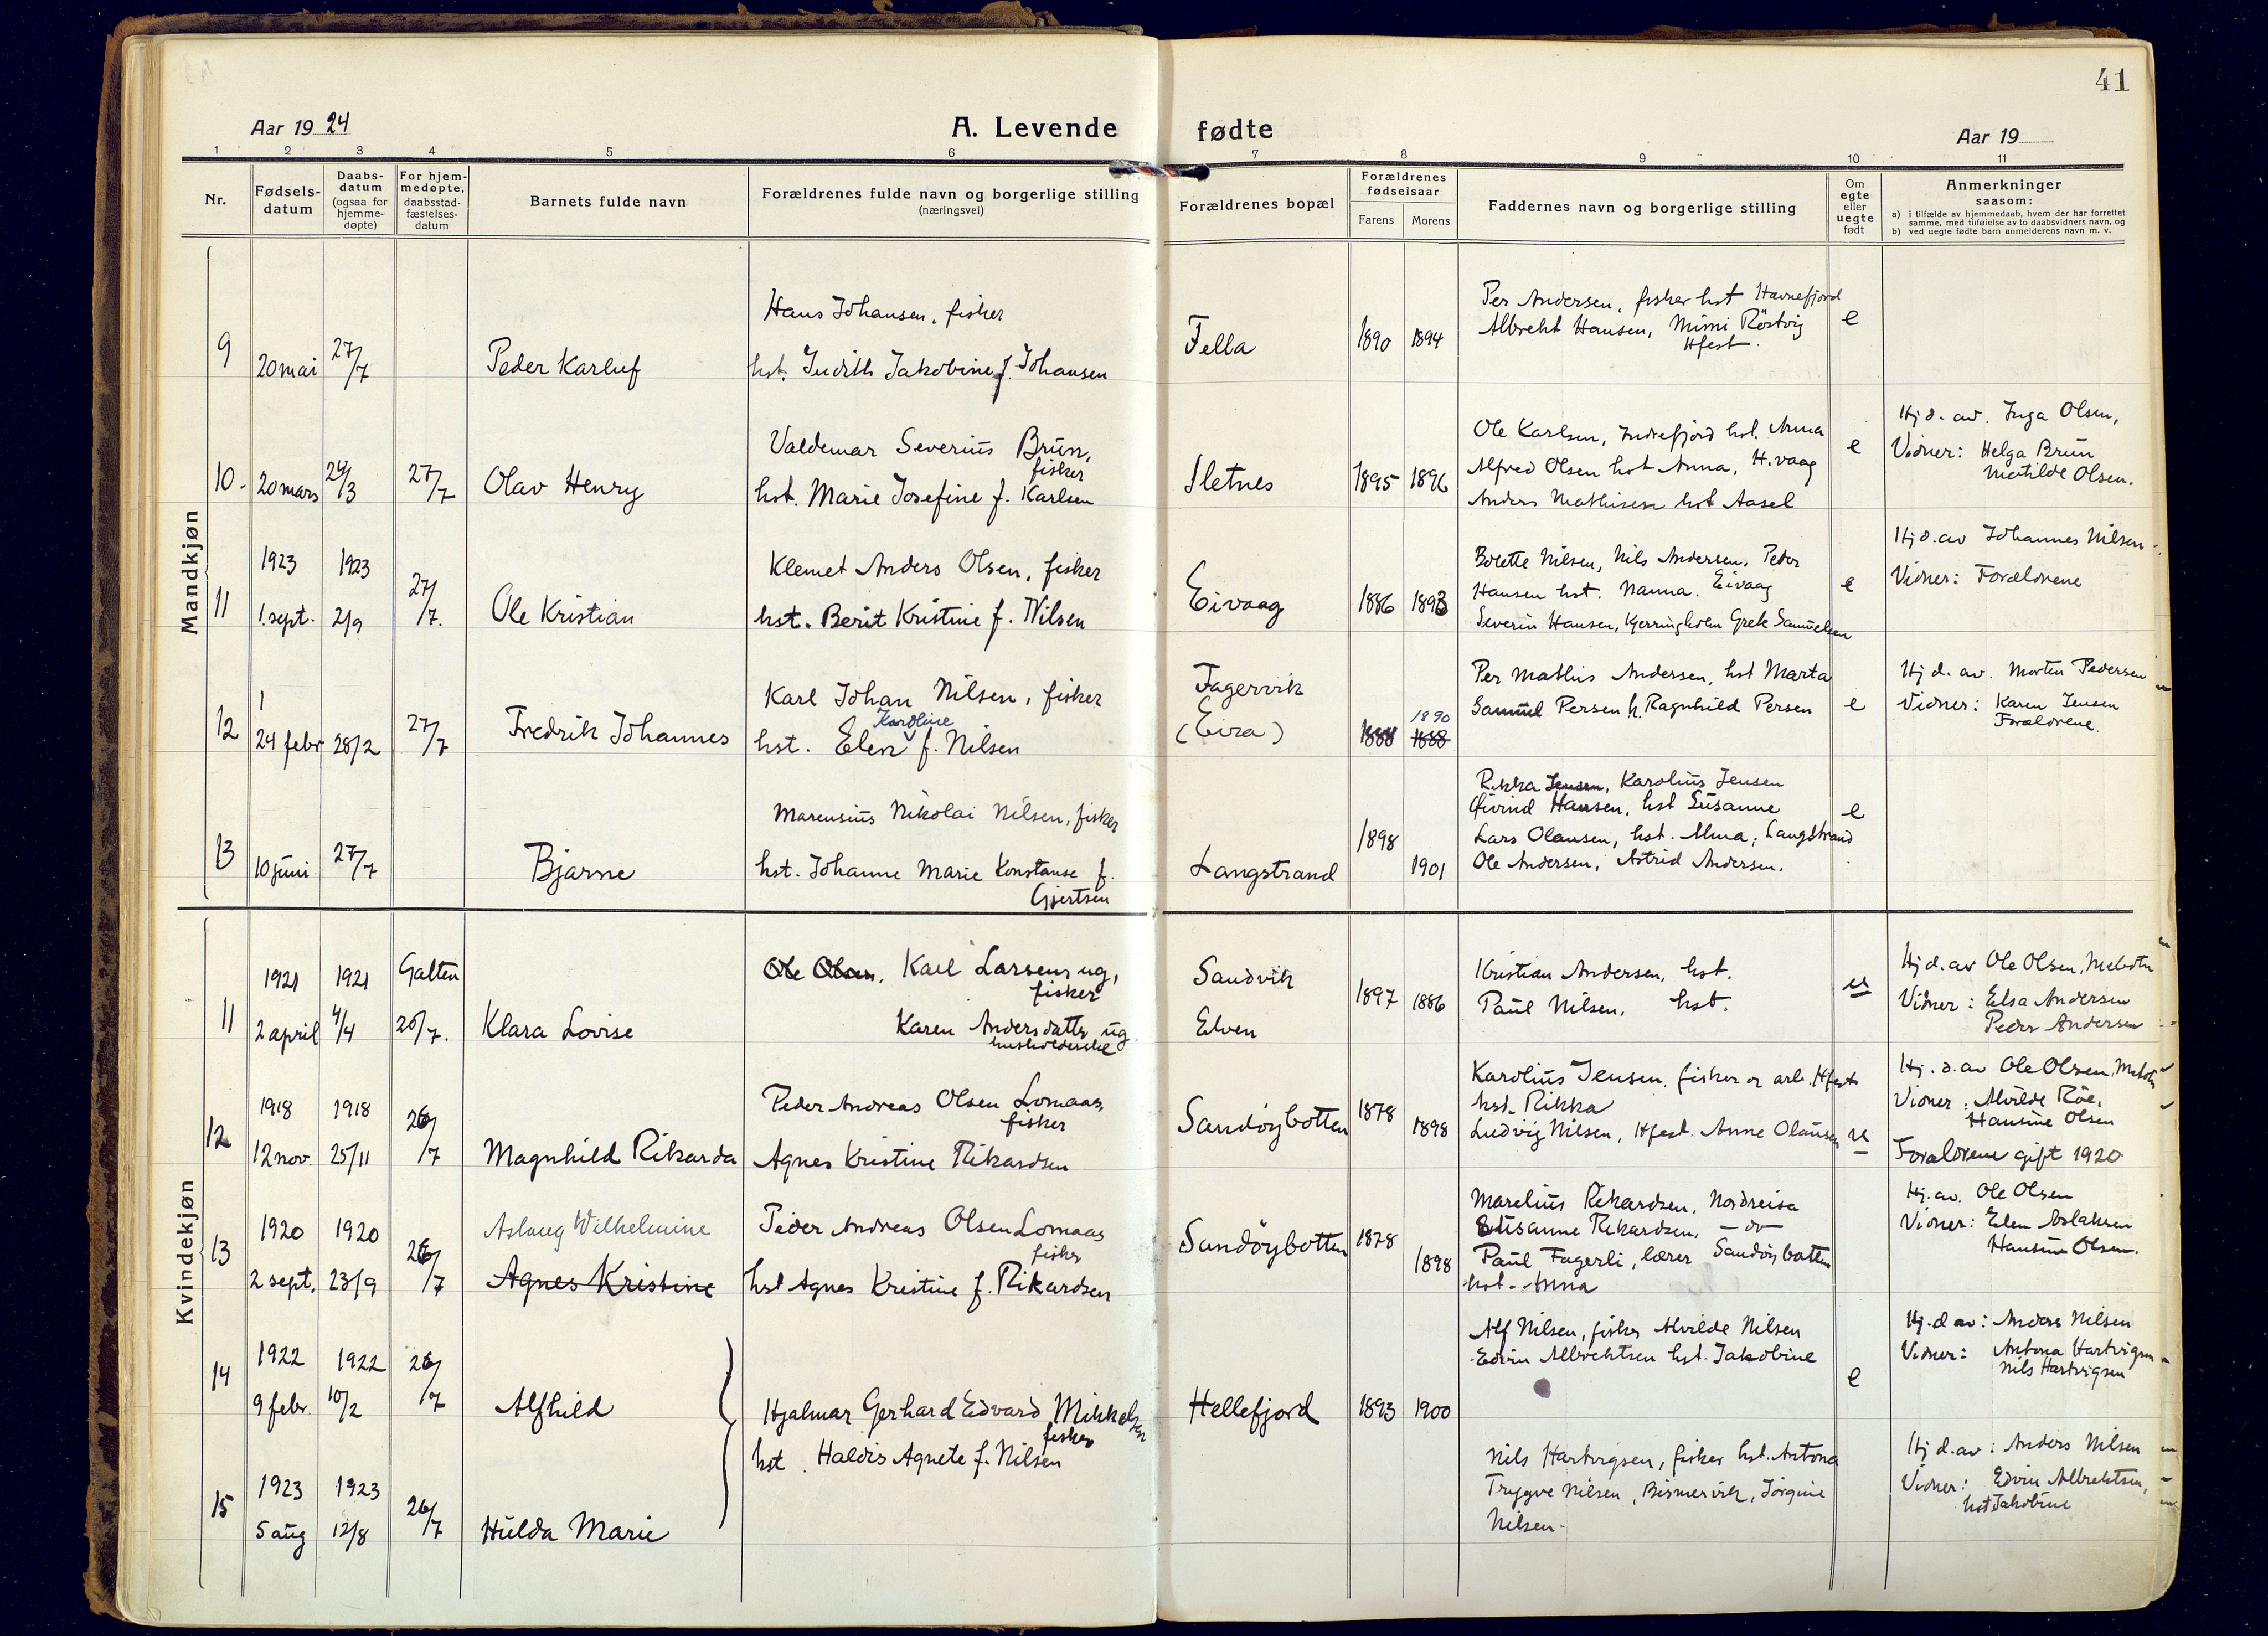 41
Aar 1924
A. Levende fødte
Aar 19
1 2 3 4 5 6 7 8 9 10 11
Nr.
Fødsels-
datum
Daabs-
datum
(ogsaa for
hjemme-
døpte)
For hjem-
medøpte,
daabsstad-
fæstelses-
datum
Barnets fulde navn
Forældrenes fulde navn og borgerlige stilling
(næringsvei)
Forældrenes bopæl
Forældrenes
fødselsaar
Farens
Morens
Faddernes navn og borgerlige stilling
Om
egte
eller
uegte
født
Anmerkninger
saasom:
a) i tilfælde av hjemmedaab, hvem der har forrettet
samme, med tilføielse av to daabsvidners navn, og
b) ved uegte fødte barn anmelderens navn m. v.
Mandkjøn
9
20 mai
27/7
Peder Karluf
Hans Johansen, fisker
hst. Judith Jakobine f. Johansen
Fella
1890 1894
Per Andersen, fisker hst Havnefjord
Albrekt Hansen, Mimi Röstvig
Hfest.
e
10.
20 mars
24/3
27/7
Olav Henry
Valdemar Severius Brun,
fisker
hst. Marie Josefine f. Karlsen
Sletnes
1895 1896
Ole Karlsen, Indrefjord hst. Anna
Alfred Olsen hst Anna, H.vaag
Anders Mathisen hst Aasel
e
Hj d. av. Inga Olsen,
Vidner: Helga Brun
Matilde Olsen.
11
1923
1. sept.
1923
2/9
27/7.
Ole Kristian
Klemet Anders Olsen, fisker
hst. Berit Kristine f. Nilsen
Eivaag
1886 1893
Bolette Nilsen, Nils Andersen, Peder
Hansen hst. Nanna. Eivaag
Severin Hansen, Kjerringholm Grete Samuelsen
e
Hj d. av Johannes Nilsen
Vidner: Forældrene
12
24 febr
28/2
27/7
Fredrik Johannes
Karl Johan Nilsen, fisker
Karoline
hst. Elen f. Nilsen
Fagervik
(Eira)
1888
1890
1888
Per Mathis Andersen, hst Marta
Samuel Persen h. Ragnhild Persen
e
Hj d. av. Morten Pedersen
Vidner: Karen Jensen
Forældrene.
13
10 juni
27/7
Bjarne
Marensius Nikolai Nilsen, fisker
hst. Johanne Marie Konstanse f.
Gjertsen
Langstrand
1898
1901
Rikka Jensen, Karolius Jensen
Øivind Hansen, hst Susanne
Lars Olausen, hst. Alma, Langstrand
Ole Andersen, Astrid Andersen.
e
Kvindekjøn
11
1921
2 april
1921
4/4
Galten
20/7.
Klara Lovise
Ole Olsen, Karl Larsen, ug,
fisker
Karen Andersdatter ug
husholderske
Sandvik
Elven
1897 1886
Kristian Andersen, hst.
Paul Nilsen, hst.
Hj d. av Ole Olsen,
Vidner: Elsa Andersen
Peder Andersen
12
1918
12 nov.
1918
25/11
26/7
Magnhild Rikarda
Peder Andreas Olsen Lomaas,
fisker
Agnes Kristine Rikardsen
Sandøybotten
1878
1898
Karolius Jensen, fisker og arb. Hfest
hst. Rikka
Ludvig Nilsen, Hfest Anne Olausen
u
Hj. d. av Ole Olsen
Vidner: Alvilde Röe,
Hansine Olsen
Forældrene gift 1920
13
1920
2 sept.
1920
23/9
26/7
Aslaug Wilhelmine
Agnes Kristine
Peder Andreas Olsen Lomaas
fisker
hst Agnes Kristine f. Rikardsen
Sandøybotten
1878
1898
Marelius Rikardsen, Nordreisa
Susanne Rikardsen, – do –
Paul Fagerli, lærer Sandøybotten
hst. Anna
Hj. av. Ole Olsen
Vidner: Elen Aslaksen
Hansine Olsen.
14
1922
9 febr.
1922
10/2
26/7
Alfhild
Hjalmar Gerhard Edvard Mikkelsen
fisker
hst. Haldis Agnete f. Nilsen
Hellefjord
1893 1900
Alf Nilsen, fisker Alvilde Nilsen
Edvin Albrektsen hst. Jakobine
e
Hj. d av: Anders Nilsen
Vidner: Antona Hartvigsen
Nils Hartvigsen
15
1923
5 aug
1923
12/8
26/7
Hulda Marie
Nils Hartvigsen, fisker hst. Antona
Trygve Nilsen, Bismervik, Jörgine
Nilsen.
Hj d. av: Anders Nilsen
Vidner: Edvin Albrektsen,
hst Jakobine